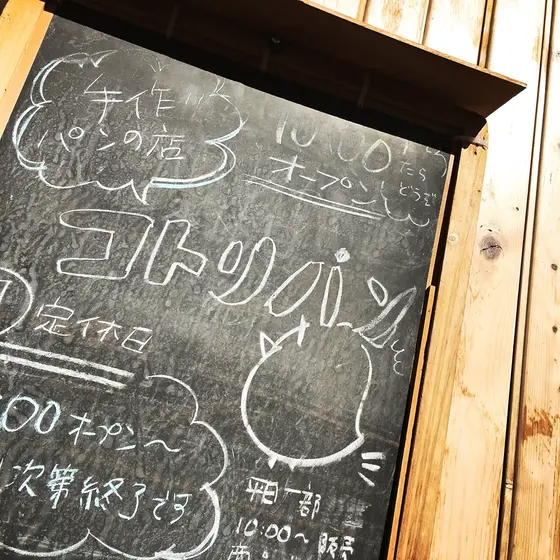 手作り
パンの店
10:00
オープン
たら
どうぞ
コトリパン
定休日
:00 オープン〜
次第終了です
平日一部
10:00〜 販売